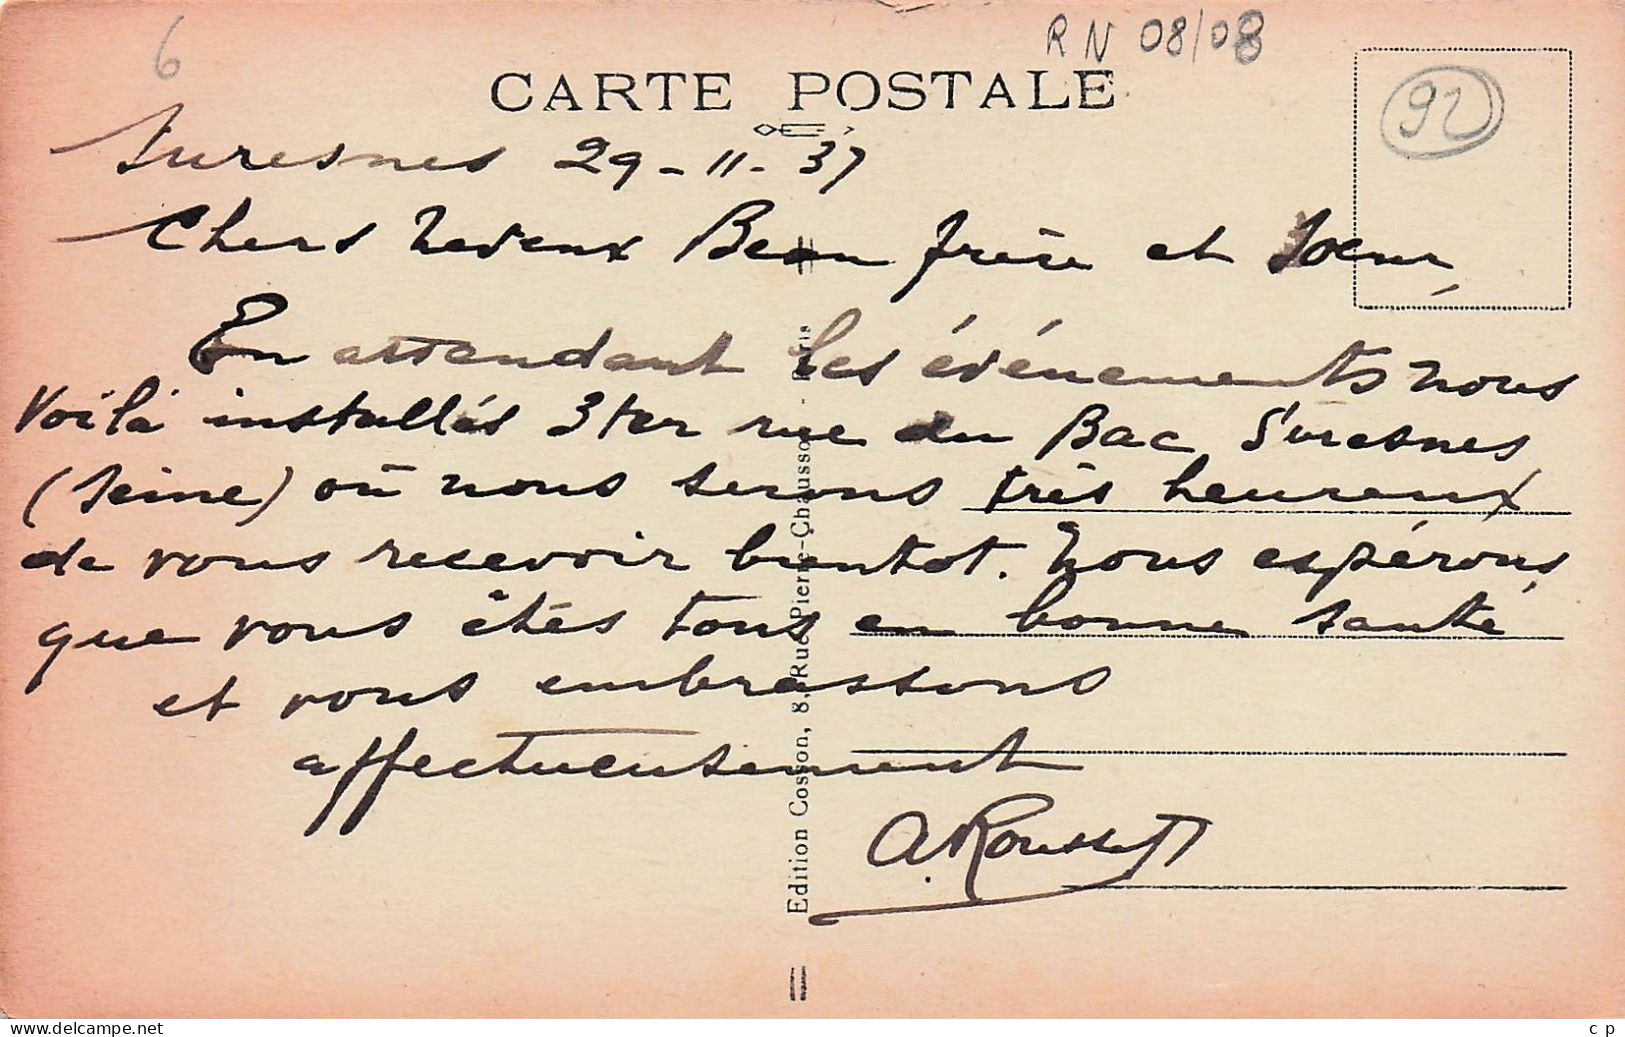 6
RN 08/08
CARTE POSTALE
92
Suresnes 29-11-37
Chers Neveux Beau frère et Soeur,
En attendant les événements nous
Voilà installés 3 ter rue du Bac Suresnes
(Seine) où nous serons très heureux
de vous recevoir bientot. Nous espérons
que vous êtes tous en bonne santé
et vous embrassons
affectueusement
Edition Cosson, 8, Rue Pierre-Chausson - Paris
www.delcampe.net
c p